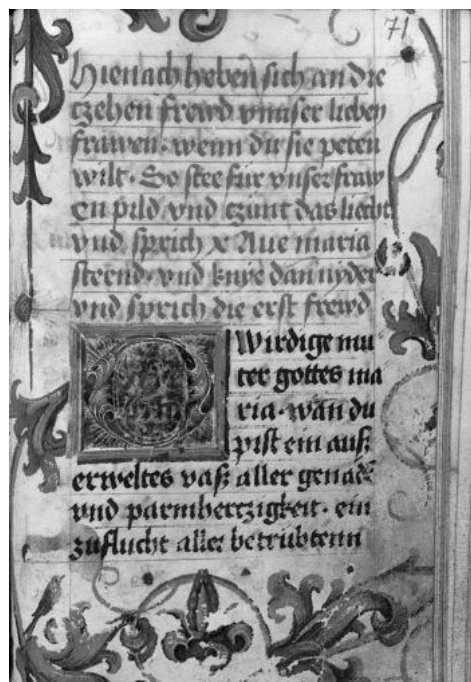 71
Hienach heben sich an die
tzehen frewd vnnser lieben
frawen. wenn du sie peten
wilt. So stee für vnser fraw
en pild vnd tzünt das liecht
vnd sprich x Aue maria
steend. vnd knye dan nyder
vnd sprich die erst frewd
O Wirdige mu
ter gottes ma
ria. wan du
pist ein auß
erweltes vaß aller genadẽ
vnd parmhertzigkeit. ein
zuflucht aller betrübtenn